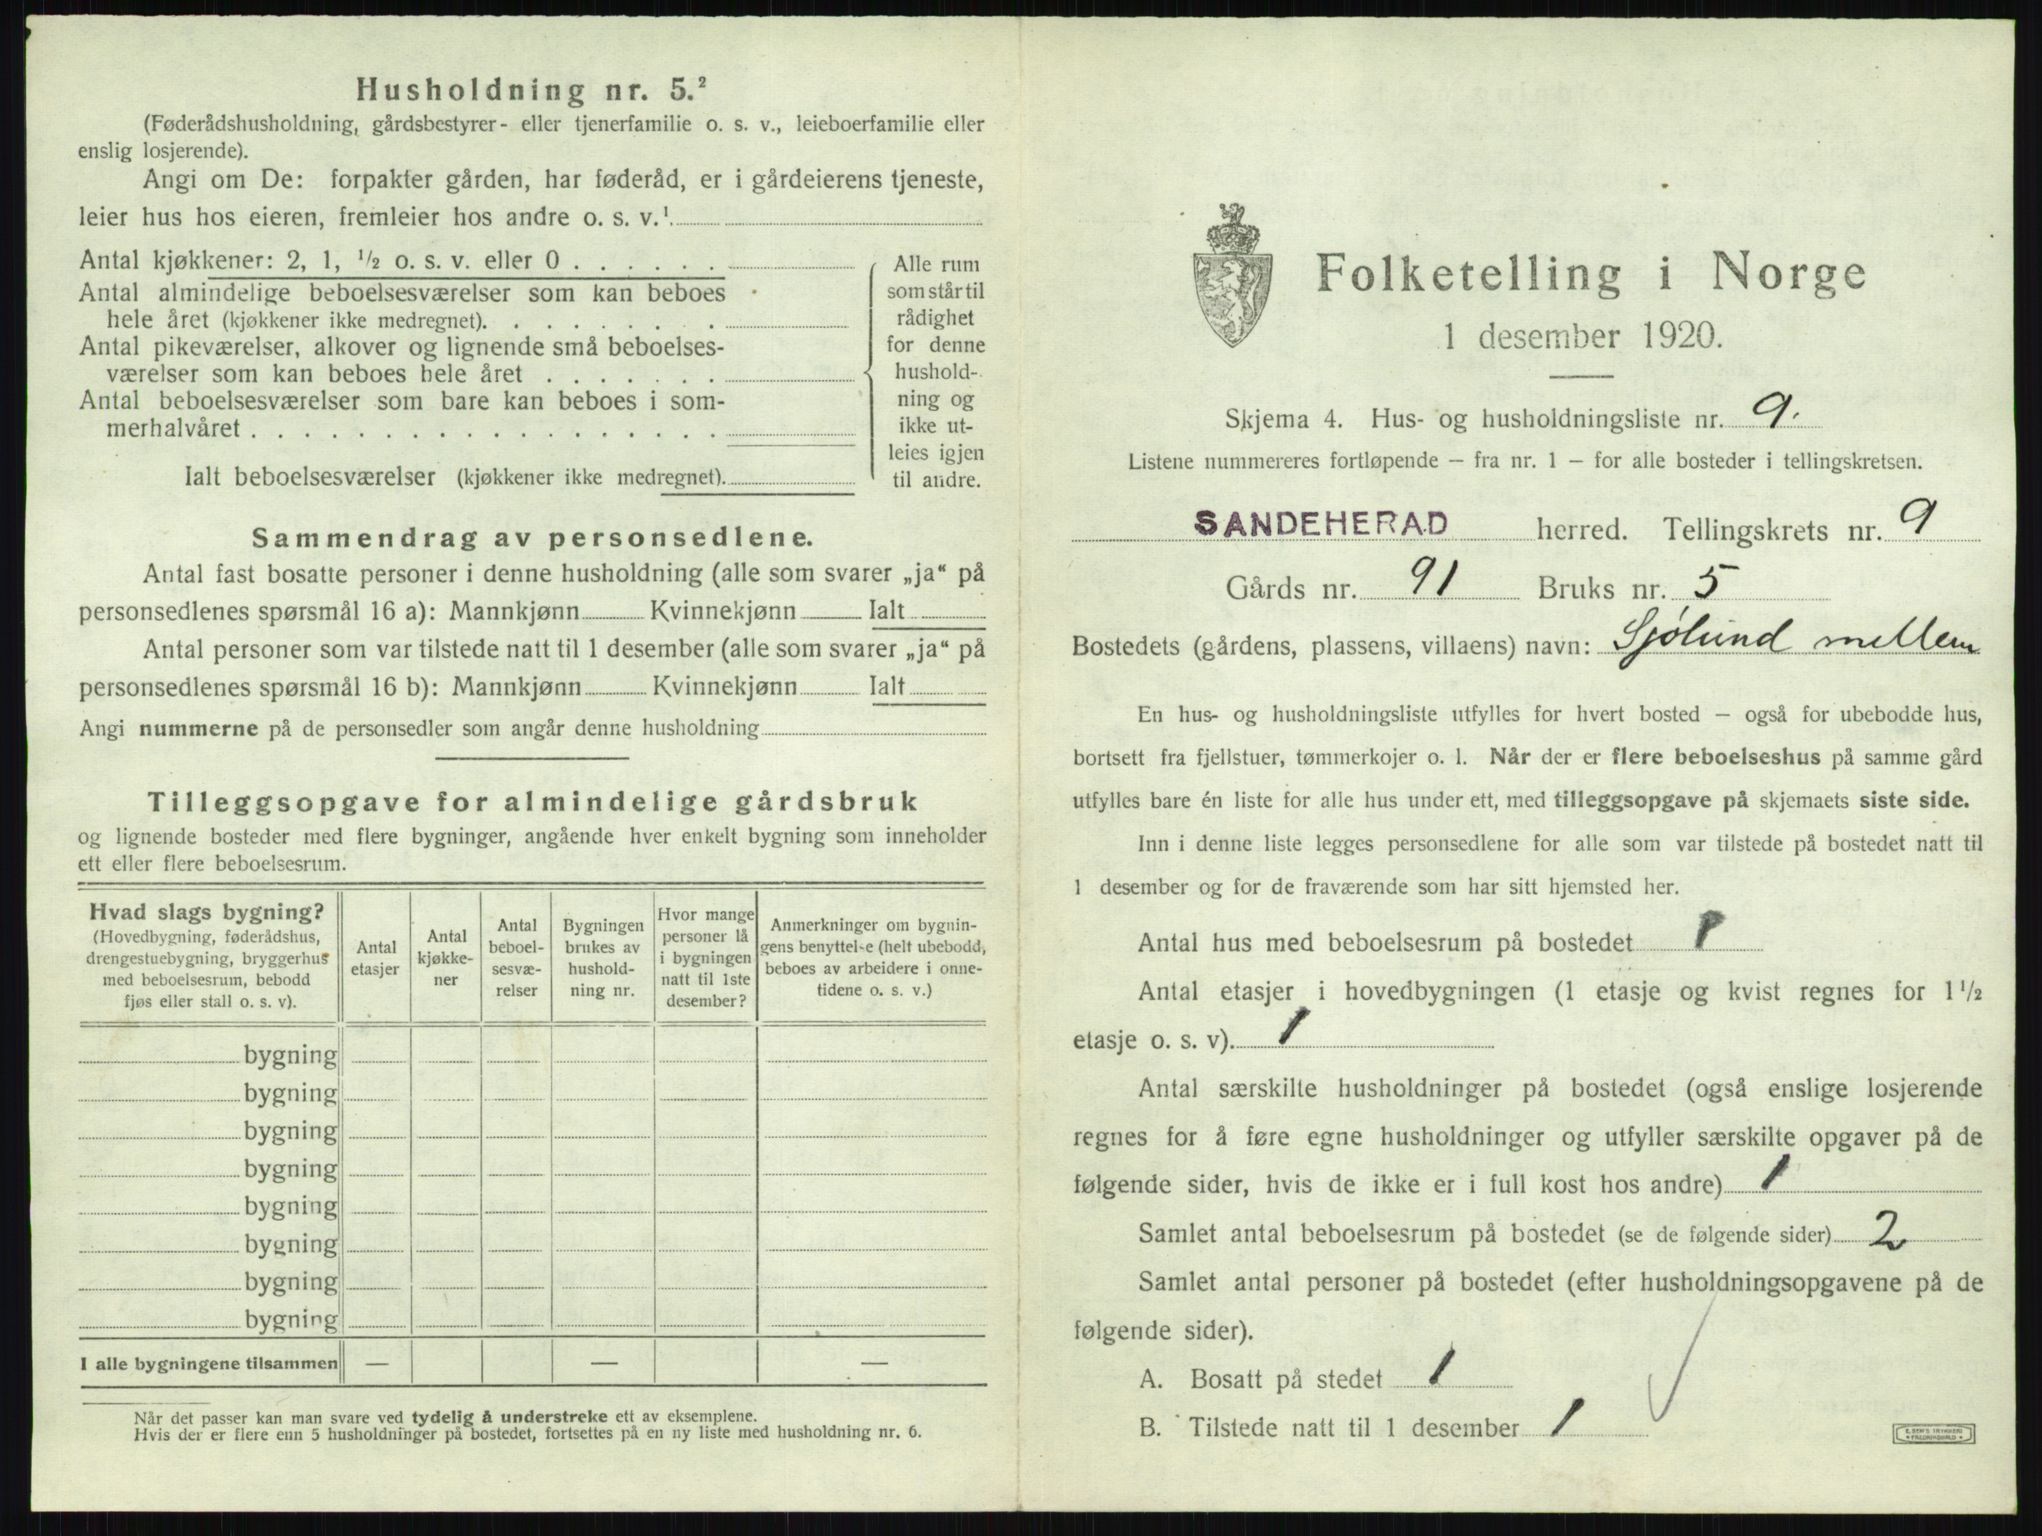 Husholdning nr. 5.²
(Føderådshusholdning, gårdsbestyrer- eller tjenerfamilie o. s. v., leieboerfamilie eller
enslig losjerende).
Angi om De: forpakter gården, har føderåd, er i gårdeierens tjeneste,
leier hus hos eieren, fremleier hos andre o. s. v.¹
Antal kjøkkener: 2, 1, ½ o. s. v. eller 0 . . . . . .
Antal almindelige beboelsesværelser som kan beboes
hele året (kjøkkener ikke medregnet). . . . . . . .
Antal pikeværelser, alkover og lignende små beboelses-
værelser som kan beboes hele året . . . . . . .
Antal beboelsesværelser som bare kan beboes i som-
merhalvåret . . . . . . . . . . . . . . . . . .
Ialt beboelsesværelser (kjøkkener ikke medregnet).
Alle rum
som står til
rådighet
for denne
hushold-
ning og
ikke ut-
leies igjen
til andre.
Sammendrag av personsedlene.
Antal fast bosatte personer i denne husholdning (alle som svarer „ja“ på
personsedlenes spørsmål 16 a): Mannkjønn Kvinnekjønn Ialt
Antal personer som var tilstede natt til 1 desember (alle som svarer „ja“ på
personsedlenes spørsmål 16 b): Mannkjønn Kvinnekjønn Ialt
Angi nummerne på de personsedler som angår denne husholdning
Tilleggsopgave for almindelige gårdsbruk
og lignende bosteder med flere bygninger, angående hver enkelt bygning som inneholder
ett eller flere beboelsesrum.
Hvad slags bygning?
(Hovedbygning, føderådshus,
drengestuebygning, bryggerhus
med beboelsesrum, bebodd
fjøs eller stall o. s. v).
Antal
etasjer
Antal
kjøkke-
ner
Antal
beboel-
sesvæ-
relser
Bygningen
brukes av
hushold-
ning nr.
Hvor mange
personer lå
i bygningen
natt til 1ste
desember?
Anmerkninger om bygnin-
gens benyttelse (helt ubebodd,
beboes av arbeidere i onne-
tidene o. s. v.)
bygning
bygning
bygning
bygning
bygning
bygning
bygning
bygning
I alle bygningene tilsammen — — —
Når det passer kan man svare ved tydelig å understreke ett av eksemplene.
Hvis der er flere enn 5 husholdninger på bostedet, fortsettes på en ny liste med husholdning nr. 6.
Folketelling i Norge
1 desember 1920.
Skjema 4. Hus- og husholdningsliste nr. 9.
Listene nummereres fortløpende – fra nr. 1 – for alle bosteder i tellingskretsen.
SANDEHERAD herred. Tellingskrets nr. 9
Gårds nr. 91 Bruks nr. 5
Bostedets (gårdens, plassens, villaens) navn: Sjölund mellem
En hus- og husholdningsliste utfylles for hvert bosted – også for ubebodde hus,
bortsett fra fjellstuer, tømmerkojer o. l. Når der er flere beboelseshus på samme gård
utfylles bare én liste for alle hus under ett, med tilleggsopgave på skjemaets siste side.
Inn i denne liste legges personsedlene for alle som var tilstede på bostedet natt til
1 desember og for de fraværende som har sitt hjemsted her.
Antal hus med beboelsesrum på bostedet 1
Antal etasjer i hovedbygningen (1 etasje og kvist regnes for 1½
etasje o. s. v). 1
Antal særskilte husholdninger på bostedet (også enslige losjerende
regnes for å føre egne husholdninger og utfyller særskilte opgaver på de
følgende sider, hvis de ikke er i full kost hos andre) 1
Samlet antal beboelsesrum på bostedet (se de følgende sider) 2
Samlet antal personer på bostedet (efter husholdningsopgavene på de
følgende sider).
A. Bosatt på stedet 1
B. Tilstede natt til 1 desember 1